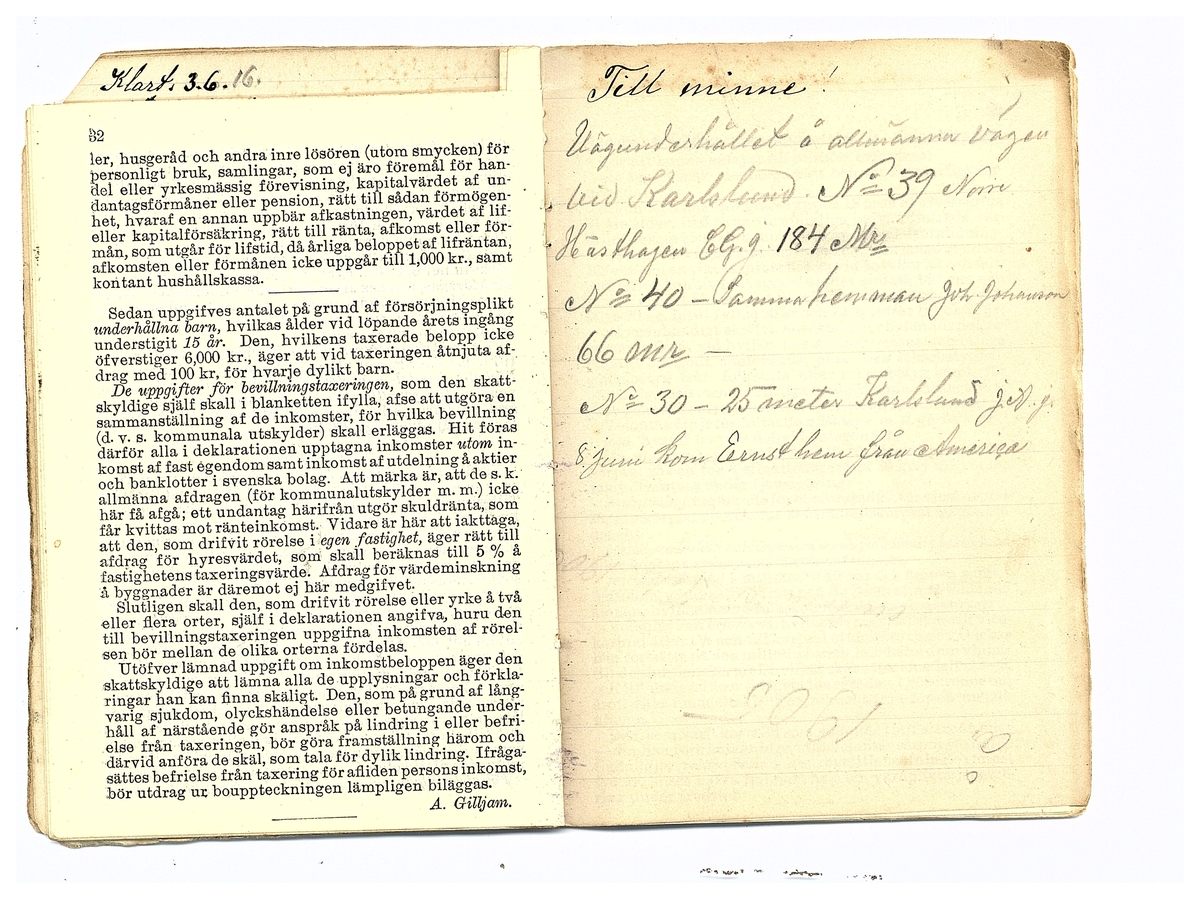 Klart 3.6.16.
32
ler, husgeråd och andra inre lösören (utom smycken) för
personligt bruk, samlingar, som ej äro föremål för han-
del eller yrkesmässig förevisning, kapitalvärdet af un-
dantagsförmåner eller pension, rätt till sådan förmögen-
het, hvaraf en annan uppbär afkastningen, värdet af lif-
eller kapitalförsäkring, rätt till ränta, afkomst eller för-
mån, som utgår för lifstid, då årliga beloppet af lifräntan,
afkomsten eller förmånen icke uppgår till 1,000 kr., samt
kontant hushållskassa.
Sedan uppgifves antalet på grund af försörjningsplikt
underhållna barn, hvilkas ålder vid löpande årets ingång
understigit 15 år. Den, hvilkens taxerade belopp icke
öfverstiger 6,000 kr., äger att vid taxeringen åtnjuta af-
drag med 100 kr, för hvarje dylikt barn.
De uppgifter för bevillningstaxeringen, som den skatt-
skyldige själf skall i blanketten ifylla, afse att utgöra en
sammanställning af de inkomster, för hvilka bevillning
(d. v. s. kommunala utskylder) skall erläggas. Hit föras
därför alla i deklarationen upptagna inkomster utom in-
komst af fast egendom samt inkomst af utdelning å aktier
och banklotter i svenska bolag. Att märka är, att de s. k.
allmänna afdragen (för kommunalutskylder m. m.) icke
här få afgå; ett undantag härifrån utgör skuldränta, som
får kvittas mot ränteinkomst. Vidare är här att iakttaga,
att den, som drifvit rörelse i egen fastighet, äger rätt till
afdrag för hyresvärdet, som skall beräknas till 5 % å
fastighetens taxeringsvärde. Afdrag för värdeminskning
å byggnader är däremot ej här medgifvet.
Slutligen skall den, som drifvit rörelse eller yrke å två
eller flera orter, själf i deklarationen angifva, huru den
till bevillningstaxeringen uppgifna inkomsten af rörel-
sen bör mellan de olika orterna fördelas.
Utöfver lämnad uppgift om inkomstbeloppen äger den
skattskyldige att lämna alla de upplysningar och förkla-
ringar han kan finna skäligt. Den, som på grund af lång-
varig sjukdom, olyckshändelse eller betungande under-
håll af närstående gör anspråk på lindring i eller befri-
else från taxeringen, bör göra framställning härom och
därvid anföra de skäl, som tala för dylik lindring. Ifråga-
sättes befrielse från taxering för afliden persons inkomst,
bör utdrag ur bouppteckningen lämpligen biläggas.
A. Gilljam.
Till minne!
Vägunderhållet å allmänna vägen
vid Karlslund. No 39 Norre
Hästhagen C.G.g. 184 Mr
No 40 – Samma hemman Joh. Johanson
66 mr –
No 30 – 25 meter Karlslund J.A.g.
8. juni kom Ernst hem från America